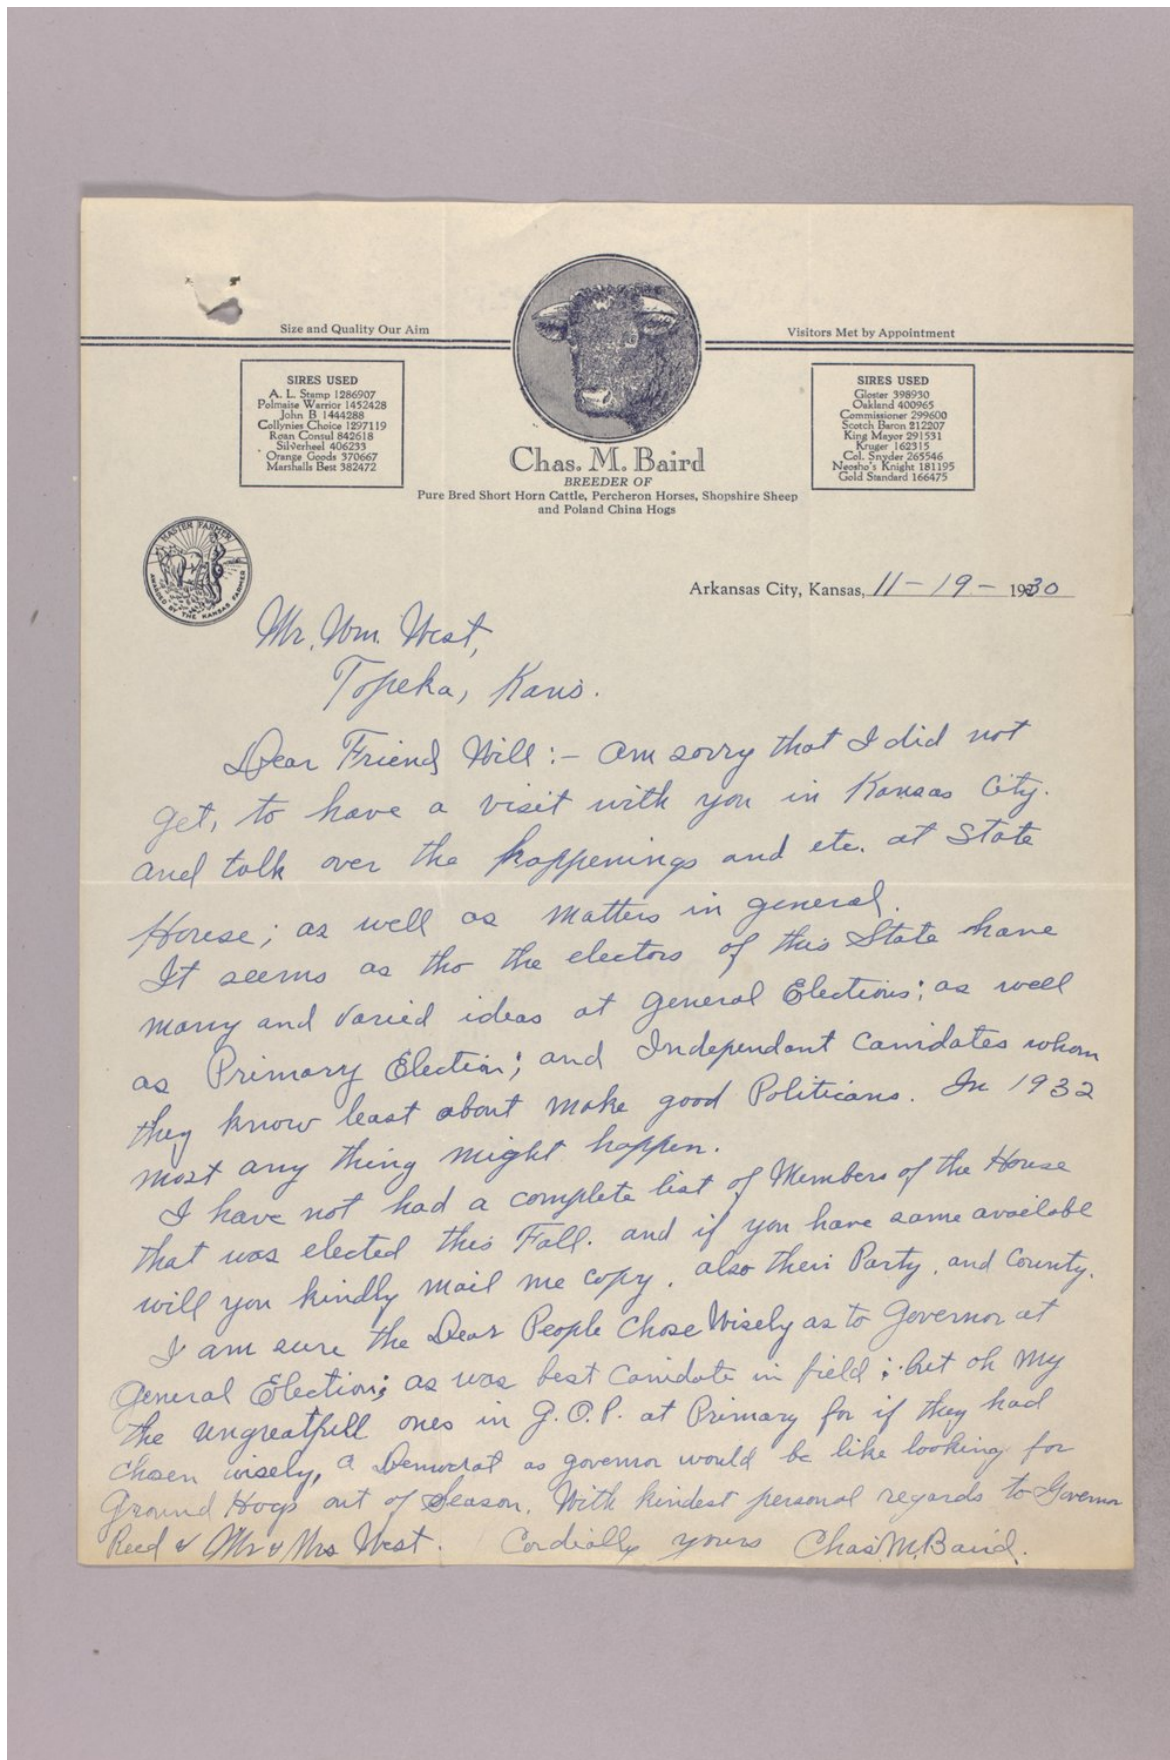 Size and Quality Our Aim
Visitors Met by Appointment
SIRES USED
A. L. Stamp 1286907
Polmaise Warrior 1452428
John B 1444288
Collynies Choice 1297119
Roan Consul 842618
Silverheel 406233
Orange Goods 370667
Marshalls Best 382472
SIRES USED
Gloster 398930
Oakland 400965
Commissioner 299600
Scotch Baron 212207
King Mayor 291531
Kruger 162315
Col. Snyder 265546
Neosho's Knight 181195
Gold Standard 166475
Chas. M. Baird
BREEDER OF
Pure Bred Short Horn Cattle, Percheron Horses, Shopshire Sheep
and Poland China Hogs
MASTER FARMER
AWARDED BY THE KANSAS FARMER
Arkansas City, Kansas, 11-19-1930
Mr. Wm. West,
Topeka, Kans.
Dear Friend Will:- am sorry that I did not
get, to have a visit with you in Kansas City.
and talk over the happenings and etc. at State
House; as well as matters in general.
It seems as tho the electors of this State have
many and varied ideas at General Elections; as well
as Primary Election; and Independant Canidates whom
they know least about make good Politicans. In 1932
most any thing might happen.
I have not had a complete list of Members of the House
that was elected this Fall. and if you have same availabl
will you kindly mail me copy. also their Party, and County.
I am sure the Dear People Chose Wisely as to Governor at
General Election; as was best Canidate in field; but oh my
the ungreatfull ones in G.O.P. at Primary for if they had
chosen wisely, a Democrat as governor would be like looking for
Ground Hogs out of Season. With kindest personal regards to Governor
Reed & Mr & Mrs West. Cordially yours Chas. M. Baird.